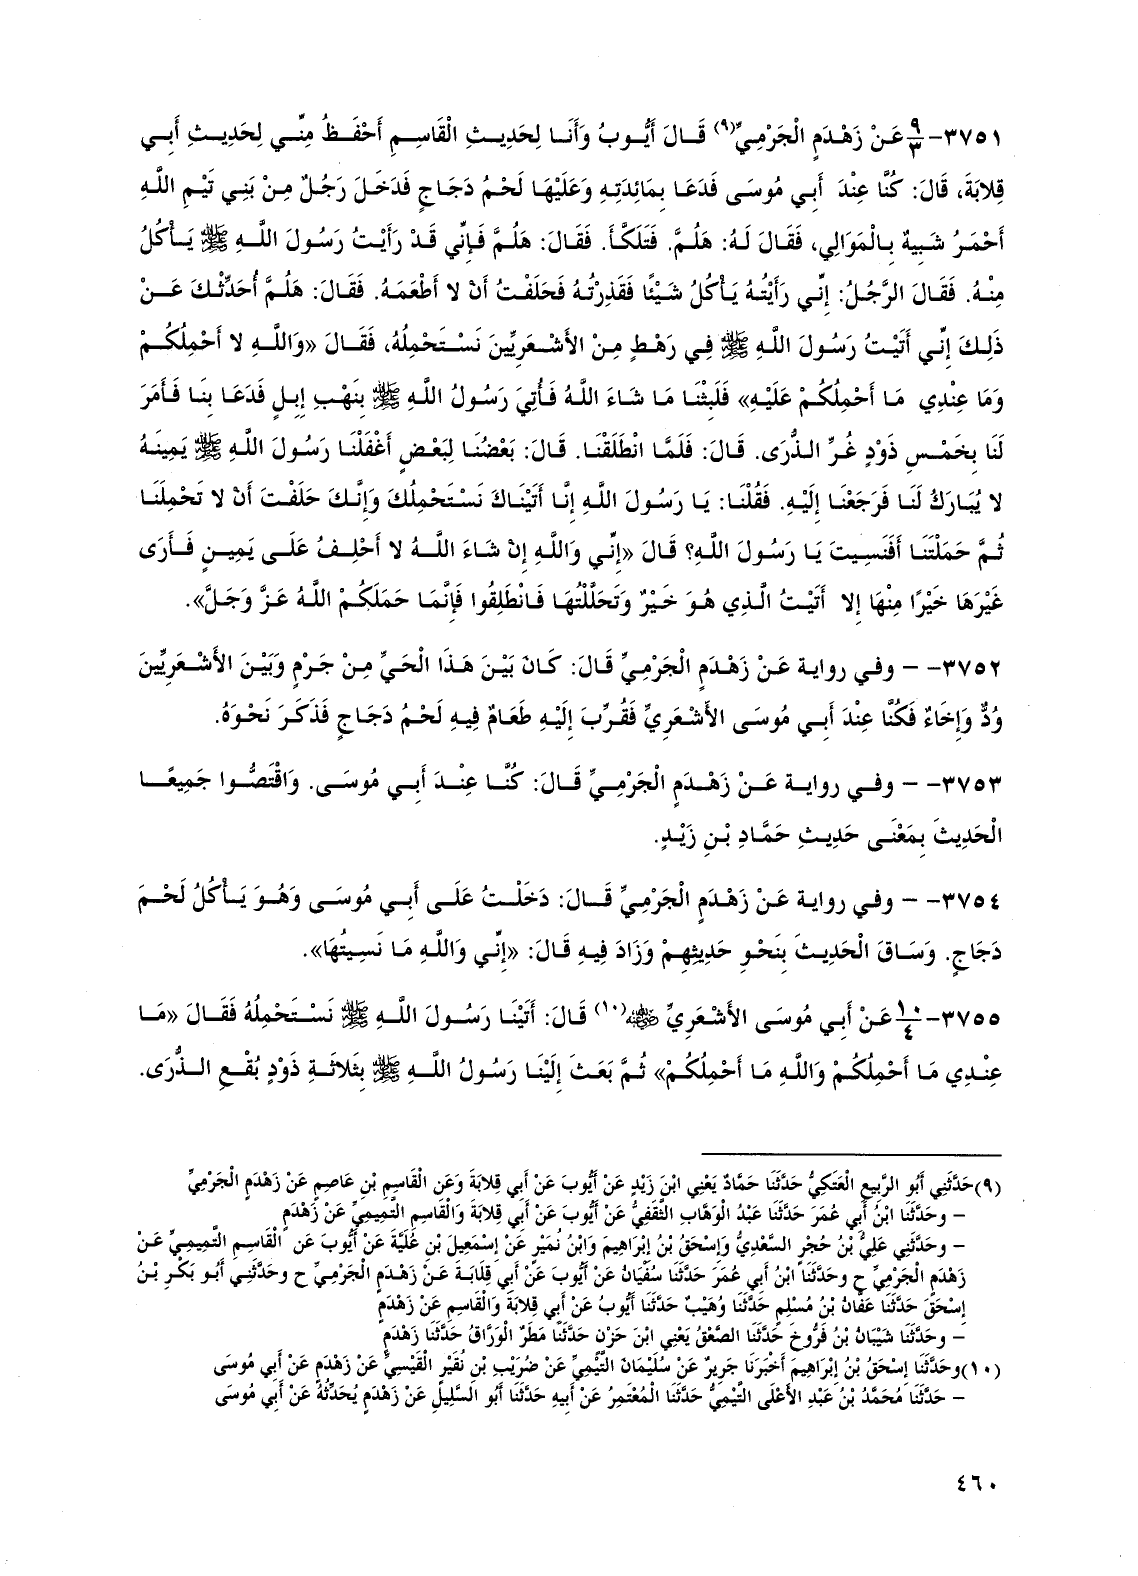 ٣٧٥١- ٩/٣ عَنْ زَهْدَمٍ الْجَرْمِيِّ(٩) قَالَ أَيُّوبُ وَأَنَا لِحَدِيثِ الْقَاسِمِ أَحْفَظُ مِنِّي لِحَدِيثِ أَبِي
قِلابَةَ، قَالَ: كُنَّا عِنْدَ أَبِي مُوسَى فَدَعَا بِمَائِدَتِهِ وَعَلَيْهَا لَحْمُ دَجَاجٍ فَدَخَلَ رَجُلٌ مِنْ بَنِي تَيْمِ اللَّهِ
أَحْمَرُ شَبِيهٌ بِالْمَوَالِي، فَقَالَ لَهُ: هَلُمَّ. فَتَلَكَّأَ. فَقَالَ: هَلُمَّ فَإِنِّي قَدْ رَأَيْتُ رَسُولَ اللَّهِ ﷺ يَأْكُلُ
مِنْهُ. فَقَالَ الرَّجُلُ: إِنِّي رَأَيْتُهُ يَأْكُلُ شَيْئًا فَقَذِرْتُهُ فَحَلَفْتُ أَنْ لا أَطْعَمَهُ. فَقَالَ: هَلُمَّ أُحَدِّثْكَ عَنْ
ذَلِكَ إِنِّي أَتَيْتُ رَسُولَ اللَّهِ ﷺ فِي رَهْطٍ مِنْ الأَشْعَرِيِّينَ نَسْتَحْمِلُهُ، فَقَالَ «وَاللَّهِ لا أَحْمِلُكُمْ
وَمَا عِنْدِي مَا أَحْمِلُكُمْ عَلَيْهِ» فَلَبِثْنَا مَا شَاءَ اللَّهُ فَأُتِيَ رَسُولُ اللَّهِ ﷺ بِنَهْبِ إِبِلٍ فَدَعَا بِنَا فَأَمَرَ
لَنَا بِخَمْسِ ذَوْدٍ غُرِّ الذُّرَى. قَالَ: فَلَمَّا انْطَلَقْنَا. قَالَ: بَعْضُنَا لِبَعْضٍ أَغْفَلْنَا رَسُولَ اللَّهِ ﷺ يَمِينَهُ
لا يُبَارَكُ لَنَا فَرَجَعْنَا إِلَيْهِ. فَقُلْنَا: يَا رَسُولَ اللَّهِ إِنَّا أَتَيْنَاكَ نَسْتَحْمِلُكَ وَإِنَّكَ حَلَفْتَ أَنْ لا تَحْمِلَنَا
ثُمَّ حَمَلْتَنَا أَفَنَسِيتَ يَا رَسُولَ اللَّهِ؟ قَالَ «إِنِّي وَاللَّهِ إِنْ شَاءَ اللَّهُ لا أَحْلِفُ عَلَى يَمِينٍ فَأَرَى
غَيْرَهَا خَيْرًا مِنْهَا إِلا أَتَيْتُ الَّذِي هُوَ خَيْرٌ وَتَحَلَّلْتُهَا فَانْطَلِقُوا فَإِنَّمَا حَمَلَكُمْ اللَّهُ عَزَّ وَجَلَّ».
٣٧٥٢- – وفي رواية عَنْ زَهْدَمٍ الْجَرْمِيِّ قَالَ: كَانَ بَيْنَ هَذَا الْحَيِّ مِنْ جَرْمٍ وَبَيْنَ الأَشْعَرِيِّينَ
وُدٌّ وَإِخَاءٌ فَكُنَّا عِنْدَ أَبِي مُوسَى الأَشْعَرِيِّ فَقُرِّبَ إِلَيْهِ طَعَامٌ فِيهِ لَحْمُ دَجَاجٍ فَذَكَرَ نَحْوَهُ.
٣٧٥٣- – وفي رواية عَنْ زَهْدَمٍ الْجَرْمِيِّ قَالَ: كُنَّا عِنْدَ أَبِي مُوسَى. وَاقْتَصُّوا جَمِيعًا
الْحَدِيثَ بِمَعْنَى حَدِيثِ حَمَّادِ بْنِ زَيْدٍ.
٣٧٥٤- – وفي رواية عَنْ زَهْدَمٍ الْجَرْمِيِّ قَالَ: دَخَلْتُ عَلَى أَبِي مُوسَى وَهُوَ يَأْكُلُ لَحْمَ
دَجَاجٍ. وَسَاقَ الْحَدِيثَ بِنَحْوِ حَدِيثِهِمْ وَزَادَ فِيهِ قَالَ: «إِنِّي وَاللَّهِ مَا نَسِيتُهَا».
٣٧٥٥- ١٠/٤ عَنْ أَبِي مُوسَى الأَشْعَرِيِّ ﷺ(١٠) قَالَ: أَتَيْنَا رَسُولَ اللَّهِ ﷺ نَسْتَحْمِلُهُ فَقَالَ «مَا
عِنْدِي مَا أَحْمِلُكُمْ وَاللَّهِ مَا أَحْمِلُكُمْ» ثُمَّ بَعَثَ إِلَيْنَا رَسُولُ اللَّهِ ﷺ بِثَلاثَةِ ذَوْدٍ بُقْعِ الذُّرَى.
(٩)حَدَّثَنِي أَبُو الرَّبِيعِ الْعَتَكِيُّ حَدَّثَنَا حَمَّادٌ يَعْنِي ابْنَ زَيْدٍ عَنْ أَيُّوبَ عَنْ أَبِي قِلابَةَ وَعَنِ الْقَاسِمِ بْنِ عَاصِمٍ عَنْ زَهْدَمٍ الْجَرْمِيِّ
– وحَدَّثَنَا ابْنُ أَبِي عُمَرَ حَدَّثَنَا عَبْدُ الْوَهَّابِ الثَّقَفِيُّ عَنْ أَيُّوبَ عَنْ أَبِي قِلابَةَ وَالْقَاسِمِ التَّمِيمِيِّ عَنْ زَهْدَمٍ
– وحَدَّثَنِي عَلِيُّ بْنُ حُجْرٍ السَّعْدِيُّ وَإِسْحَقُ بْنُ إِبْرَاهِيمَ وَابْنُ نُمَيْرٍ عَنْ إِسْمَعِيلَ بْنِ عُلَيَّةَ عَنْ أَيُّوبَ عَنِ الْقَاسِمِ التَّمِيمِيِّ عَنْ
زَهْدَمٍ الْجَرْمِيِّ ح وحَدَّثَنَا ابْنُ أَبِي عُمَرَ حَدَّثَنَا سُفْيَانُ عَنْ أَيُّوبَ عَنْ أَبِي قِلَابَةَ عَنْ زَهْدَمٍ الْجَرْمِيِّ ح وحَدَّثَنِي أَبُو بَكْرِ بْنُ
إِسْحَقَ حَدَّثَنَا عَفَّانُ بْنُ مُسْلِمٍ حَدَّثَنَا وُهَيْبٌ حَدَّثَنَا أَيُّوبُ عَنْ أَبِي قِلابَةَ وَالْقَاسِمِ عَنْ زَهْدَمٍ
– وحَدَّثَنَا شَيْبَانُ بْنُ فَرُّوخَ حَدَّثَنَا الصَّعْقُ يَعْنِي ابْنَ حَزْنٍ حَدَّثَنَا مَطَرٌ الْوَرَّاقُ حَدَّثَنَا زَهْدَمٌ
(١٠)وحَدَّثَنَا إِسْحَقُ بْنُ إِبْرَاهِيمَ أَخْبَرَنَا جَرِيرٌ عَنْ سُلَيْمَانَ التَّيْمِيِّ عَنْ ضُرَيْبِ بْنِ نُقَيْرٍ الْقَيْسِيِّ عَنْ زَهْدَمٍ عَنْ أَبِي مُوسَى
– حَدَّثَنَا مُحَمَّدُ بْنُ عَبْدِ الأَعْلَى التَّيْمِيُّ حَدَّثَنَا الْمُعْتَمِرُ عَنْ أَبِيهِ حَدَّثَنَا أَبُو السَّلِيلِ عَنْ زَهْدَمٍ يُحَدِّثُهُ عَنْ أَبِي مُوسَى
٤٦٠